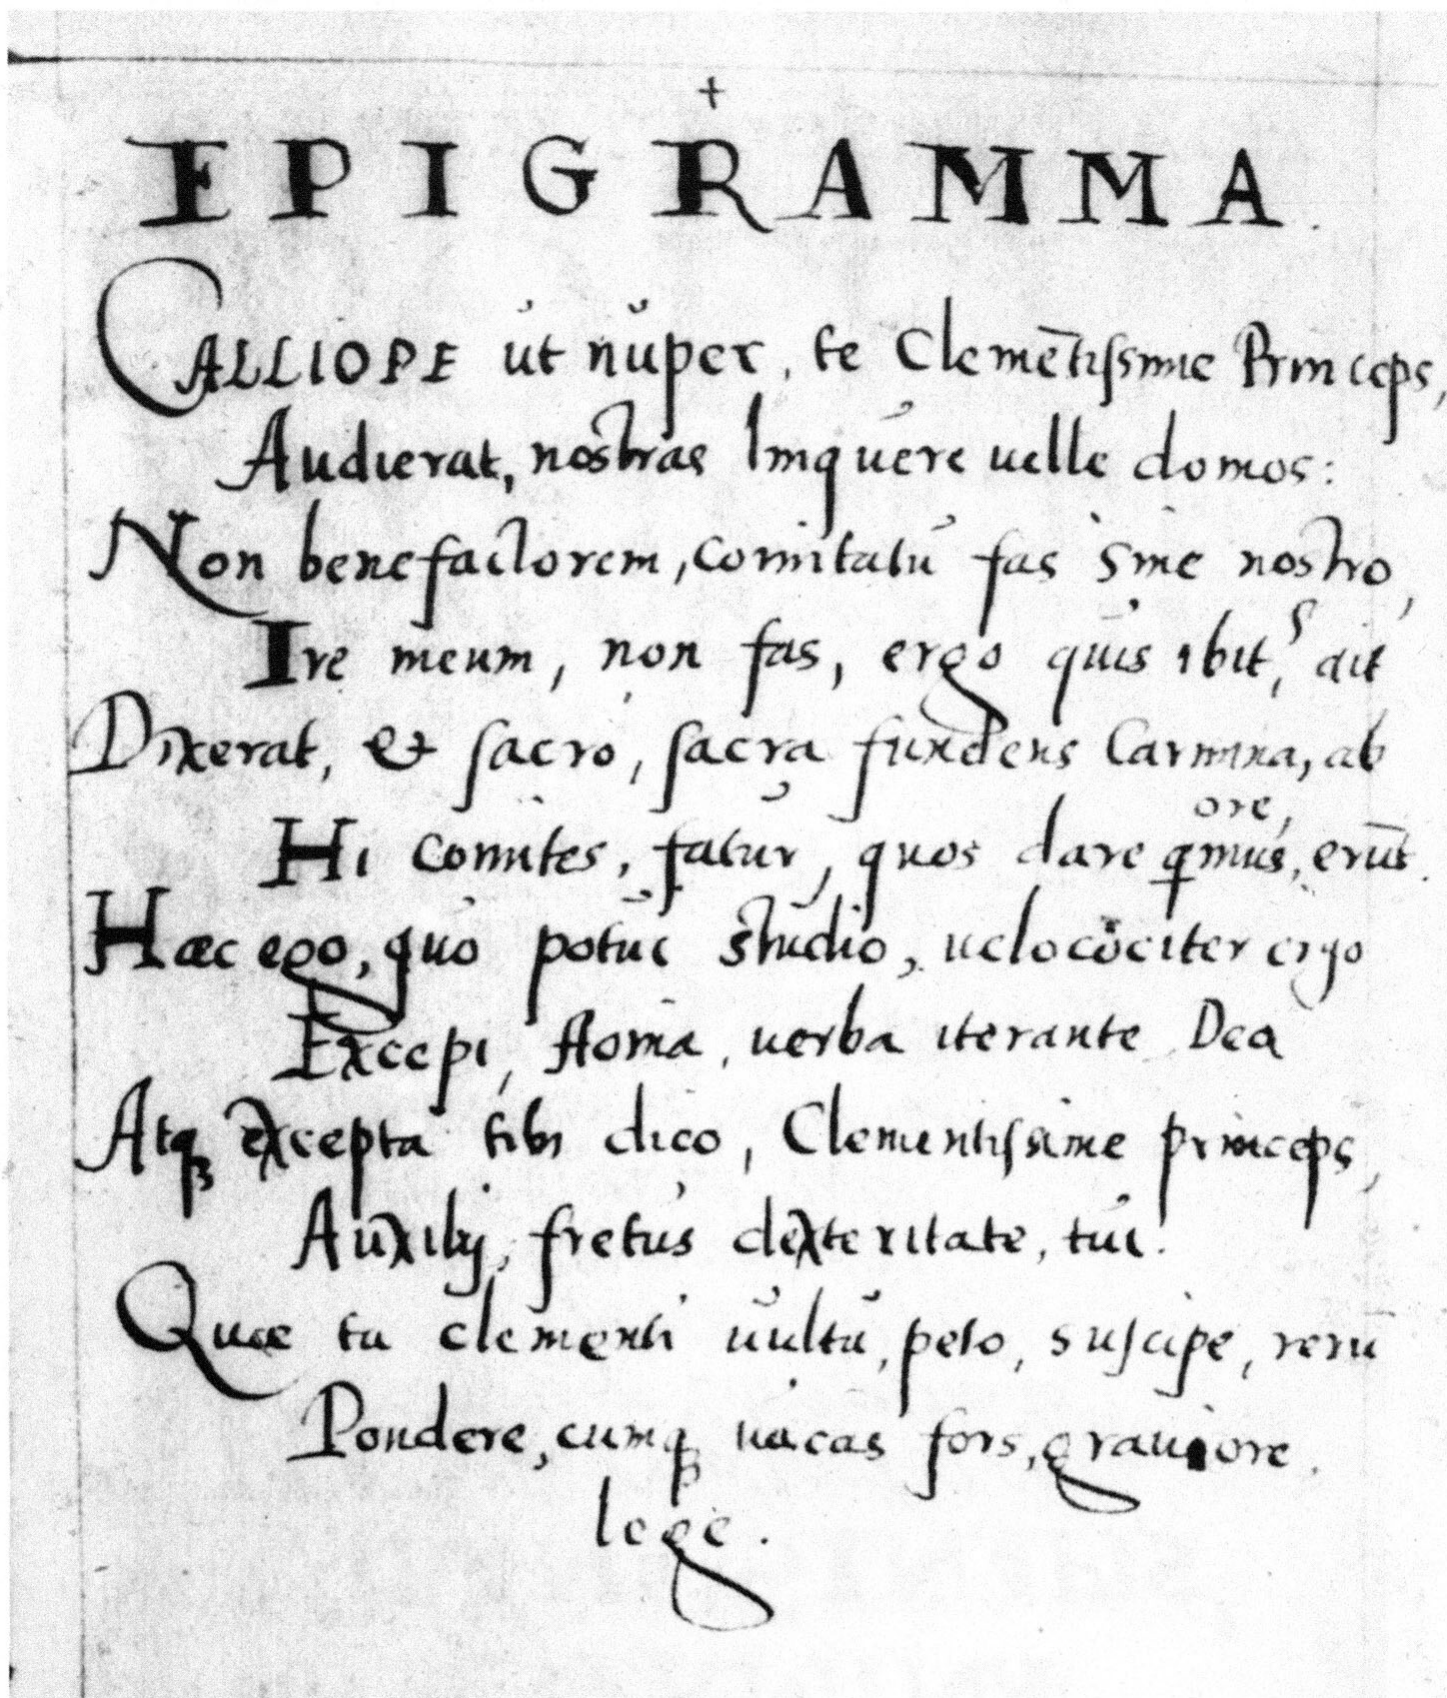 +
EPIGRAMMA.
CALLIOPE ut nuper, te Clemētissime Princeps,
Audierat, nostras linquere uelle domos:
Non benefactorem, comitatu fas sine nostro,
Ire meum, non fas, ergo quis ibit, ait
Dixerat, & sacro, sacra fundens Carmina, ab
ore,
Hi comites, fatur, quos dare qimus, erūt.
Hæc ego, quo potui studio, uelocociter ergo
Excepi, uerba iterante Dea
Atq excepta tibi dico, Clementissime princeps,
Auxilij, fretus dexteritate, tui.
Quæ tu clementi uultu, peto, suscipe, rerū
Pondere, cumq uacas fors, grauiore.
lege.